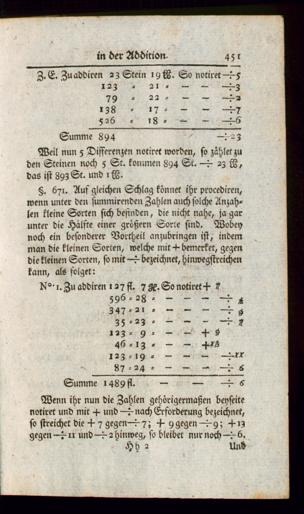 in der Addition. 451
Z. E. Zu addiren 23 Stein 19 ℔. So notiret —÷ 5
123 „ 21 „ — — —÷3
79 „ 22 „ — — —÷2
138 „ 17 „ — — —÷7
526 „ 18 „ — — —÷6
Summe 894 —÷23
Weil nun 5 Differenzen notiret worden, so zählet zu
den Steinen noch 5 St. kommen 894 St. —÷ 23 ℔,
das ist 893 St. und 1 ℔.
§. 671. Auf gleichen Schlag könnet ihr procediren,
wenn unter den summirenden Zahlen auch solche Anzah-
len kleine Sorten sich befinden, die nicht nahe, ja gar
unter die Hälfte einer größern Sorte sind. Wobey
noch ein besonderer Vortheil anzubringen ist, indem
man die kleinen Sorten, welche mit + bemerket, gegen
die kleinen Sorten, so mit —÷ bezeichnet, hinwegstreichen
kann, als folget:
No. 1. Zu addiren 127 fl. 7 . So notiret + 7
596 „ 28 „ — — —÷
347 „ 21 „ — — —÷ 9
35 „ 23 „ — — —÷ 7
123 „ 9 „ — — + 9
46 „ 13 „ — — + 13
123 „ 19 „ — — —÷ 11
87 „ 24 „ — — —÷ 6
Summe 1489 fl. — — —÷ 6
Wenn ihr nun die Zahlen gehörigermaßen beyseite
notiret und mit + und —÷ nach Erforderung bezeichnet,
so streichet die + 7 gegen —÷ 7; + 9 gegen —÷ 9; + 13
gegen —÷ 11 und —÷ 2 hinweg, so bleibet nur noch —÷ 6.
Hh 2 Und